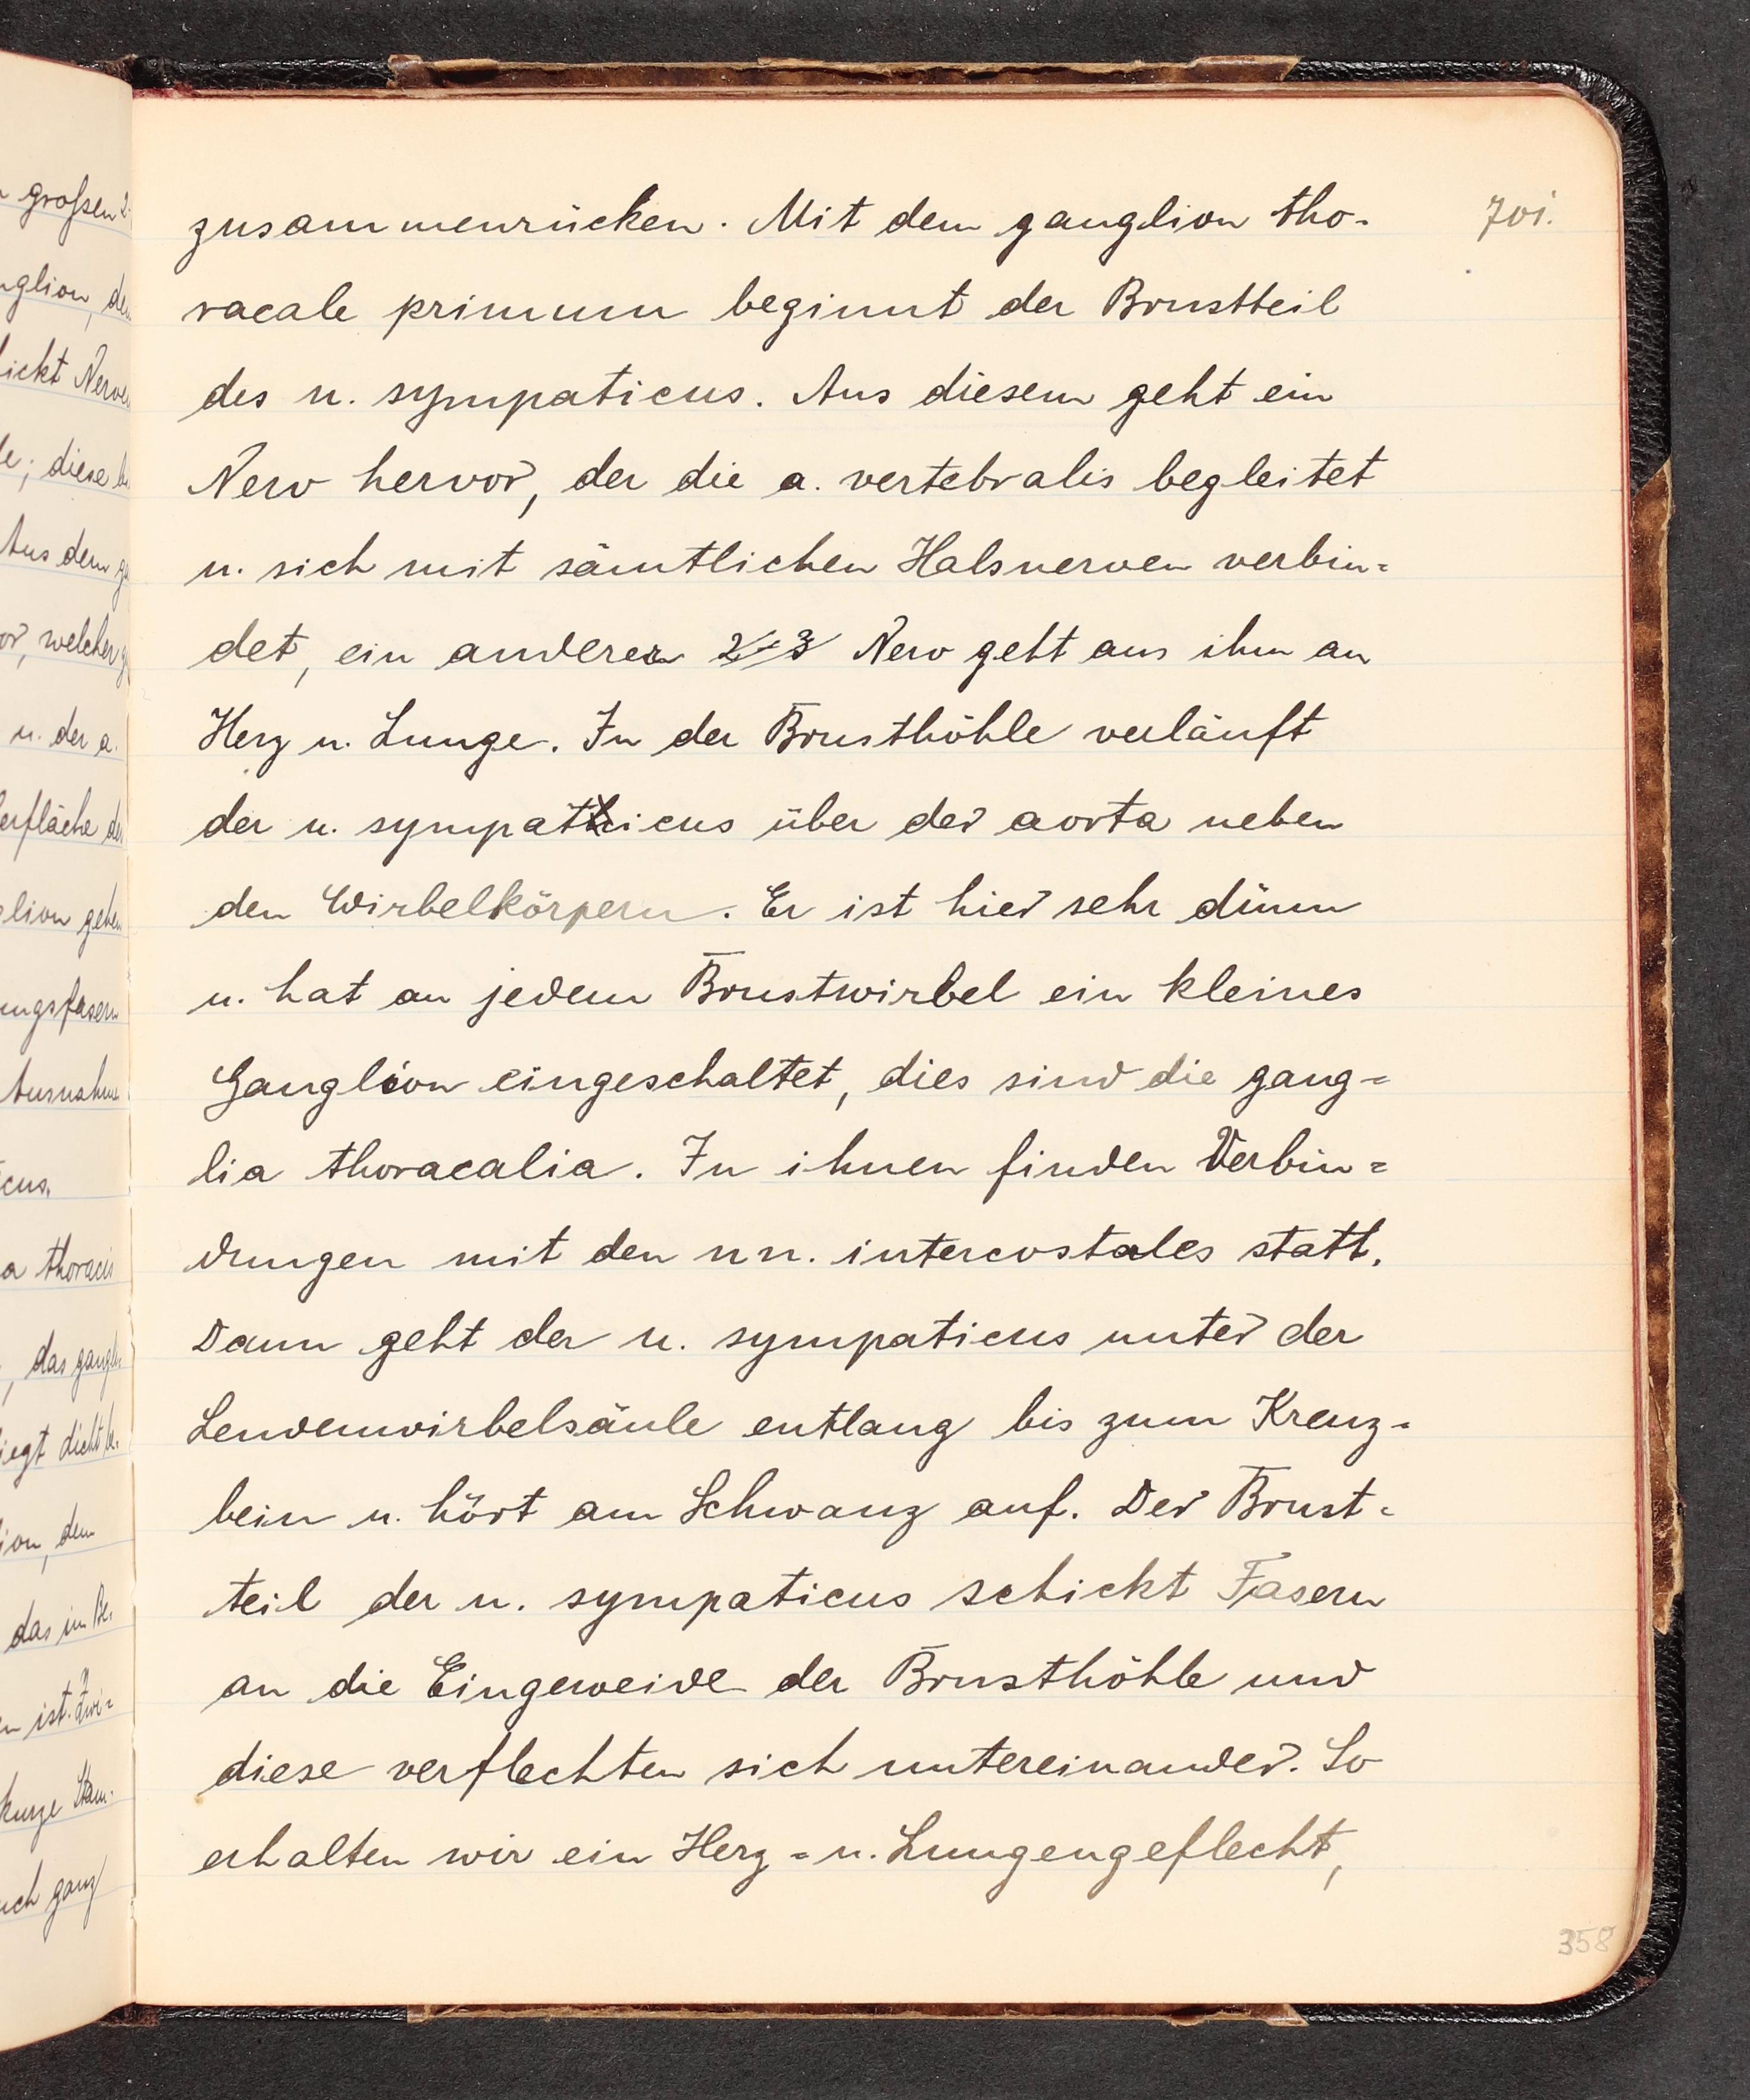 701.
zusammenrücken. Mit dem ganglion tho-
racale primum beginnt der Brustteil
des n. sympaticus. Aus diesem geht ein
Nerv hervor, der die a. vertebralis begleitet
u. sich mit sämtlichen Halsnerven verbin=
det, ein anderer 2-3 Nerv geht aus ihm an
Herz u. Lunge. In der Brusthöhle verläuft
der n. sympaticus über der aorta neben
den Wirbelkörpern. Er ist hier sehr dünn
u. hat an jedem Brustwirbel ein kleines
Ganglion eingeschaltet, dies sind die gang=
lia thoracalia. In ihnen finden Verbin=
dungen mit den nn. intercostales statt.
Dann geht der n. sympaticus unter der
Lendenwirbelsäule entlang bis zum Kreuz=
bein u. hört am Schwanz auf. Der Brust=
teil der n. sympaticus schickt Fasern
an die Eingeweide der Brusthöhle und
diese verflechten sich untereinander. So
erhalten wir ein Herz= u. Lungengeflecht,
358
großen 2
glion, de
ickt Nerve
diese
Aus dem
welcher
u. der a.
erfläche de
lion gehe
ungsfasern
Ausnahme
cus.
a thoracis
, das gangl
iegt dicht
ion, dem
das im
ist. Zwi=
kurze
uch ganz